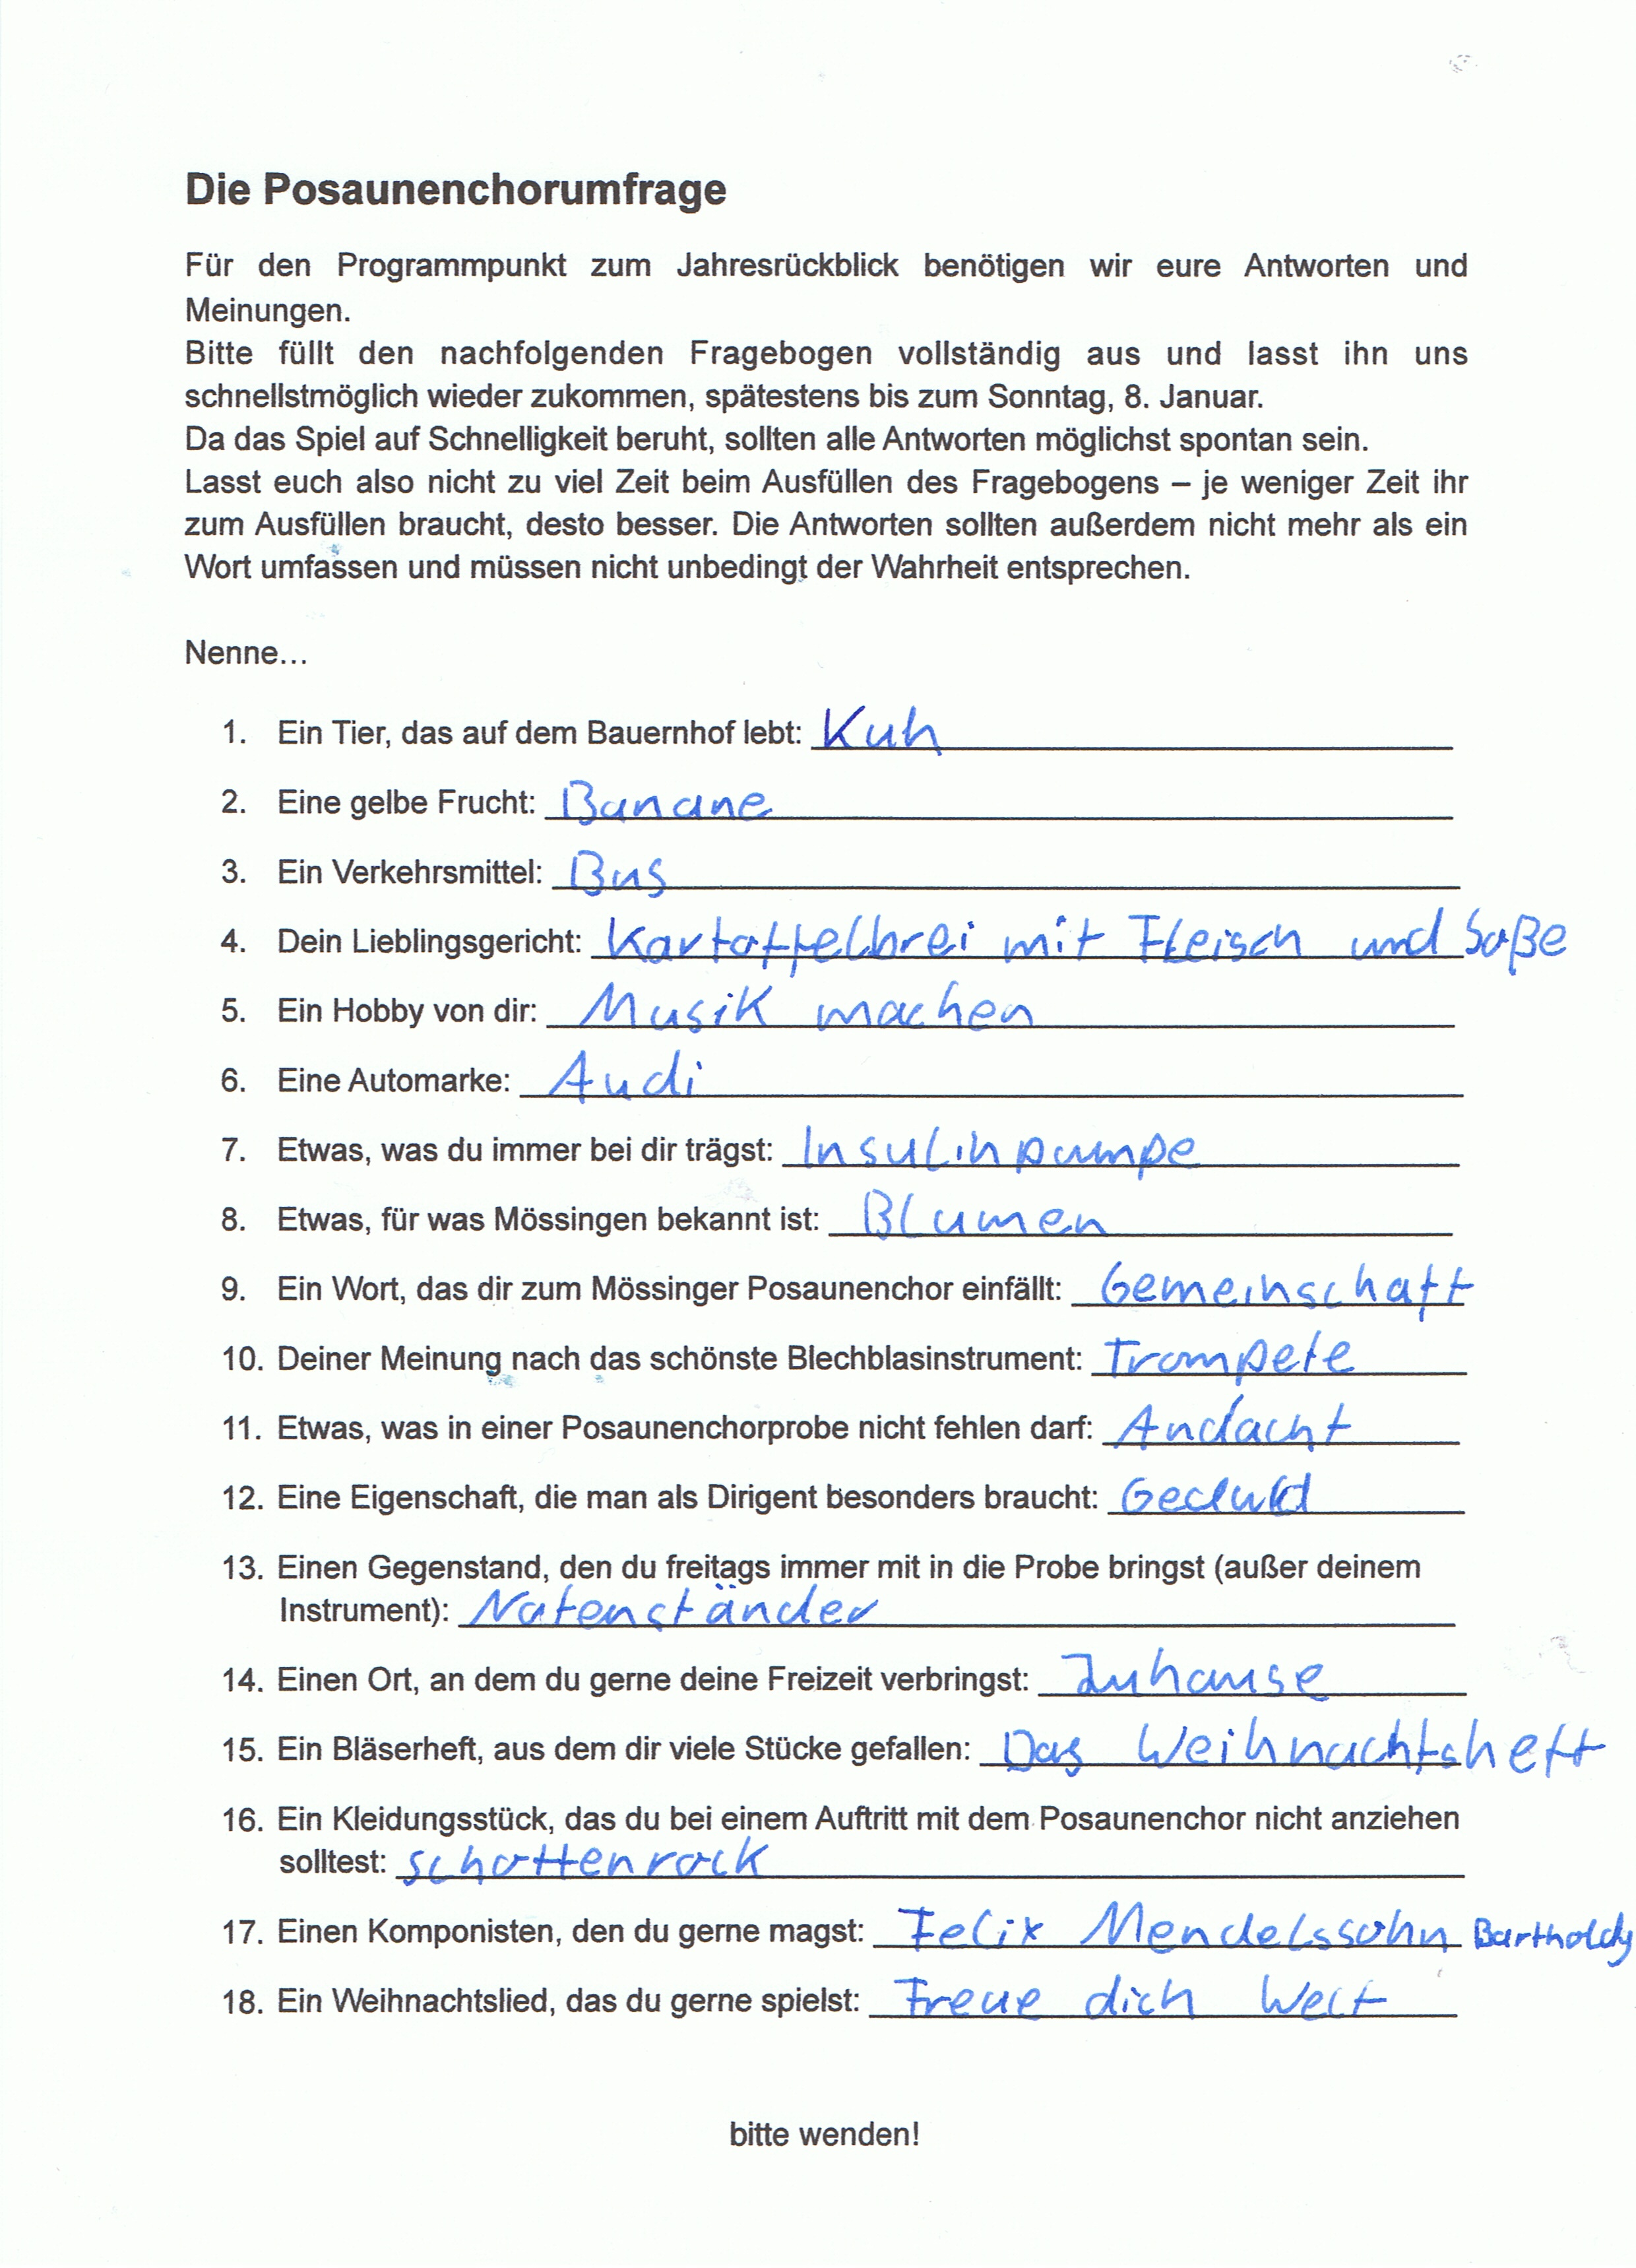 Die Posaunenchorumfrage
Für den Programmpunkt zum Jahresrückblick benötigen wir eure Antworten und
Meinungen.
Bitte füllt den nachfolgenden Fragebogen vollständig aus und lasst ihn uns
schnellstmöglich wieder zukommen, spätestens bis zum Sonntag, 8. Januar.
Da das Spiel auf Schnelligkeit beruht, sollten alle Antworten möglichst spontan sein.
Lasst euch also nicht zu viel Zeit beim Ausfüllen des Fragebogens – je weniger Zeit ihr
zum Ausfüllen braucht, desto besser. Die Antworten sollten außerdem nicht mehr als ein
Wort umfassen und müssen nicht unbedingt der Wahrheit entsprechen.
Nenne...
1. Ein Tier, das auf dem Bauernhof lebt: Kuh
2. Eine gelbe Frucht: Banane
3. Ein Verkehrsmittel: Bus
4. Dein Lieblingsgericht: Kartoffelbrei mit Fleisch und Soße
5. Ein Hobby von dir: Musik machen
6. Eine Automarke: Audi
7. Etwas, was du immer bei dir trägst: Insulinpumpe
8. Etwas, für was Mössingen bekannt ist: Blumen
9. Ein Wort, das dir zum Mössinger Posaunenchor einfällt: Gemeinschaft
10. Deiner Meinung nach das schönste Blechblasinstrument: Trompete
11. Etwas, was in einer Posaunenchorprobe nicht fehlen darf: Andacht
12. Eine Eigenschaft, die man als Dirigent besonders braucht: Geduld
13. Einen Gegenstand, den du freitags immer mit in die Probe bringst (außer deinem
Instrument): Notenständer
14. Einen Ort, an dem du gerne deine Freizeit verbringst: Zuhause
15. Ein Bläserheft, aus dem dir viele Stücke gefallen: Das Weihnachtsheft
16. Ein Kleidungsstück, das du bei einem Auftritt mit dem Posaunenchor nicht anziehen
solltest: Schottenrock
17. Einen Komponisten, den du gerne magst: Felix Mendelssohn Bartholdy
18. Ein Weihnachtslied, das du gerne spielst: Freue dich Welt
bitte wenden!